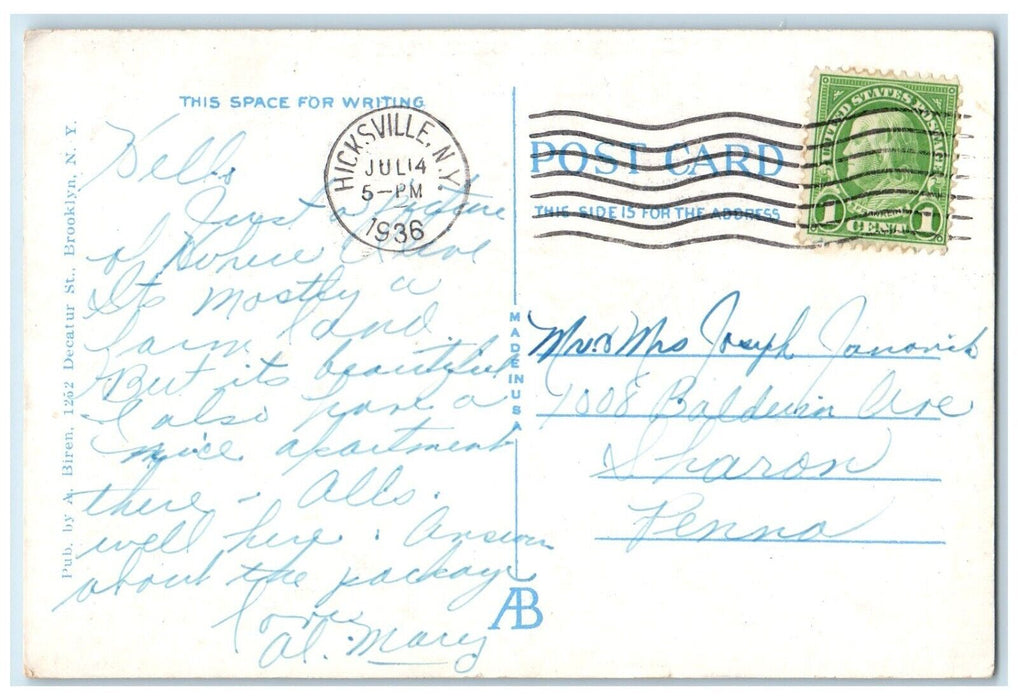 THIS SPACE FOR WRITING
Hello
Just a Picture
of where I live
Its mostly a
farm land
But its beautiful
I also have a
nice apartment
there - Alls
well here. Answer
about the package
Love
Al. Mary
Pub. by A. Biren, 1252 Decatur St., Brooklyn, N. Y.
HICKSVILLE, N.Y.
JUL 14
5-PM
1936
MADE IN USA
AB
POST CARD
THIS SIDE IS FOR THE ADDRESS
UNITED STATES POSTAGE
1 CENT 1
Mr. & Mrs Joseph Janovich
1008 Baldwin Ave
Sharon
Penna